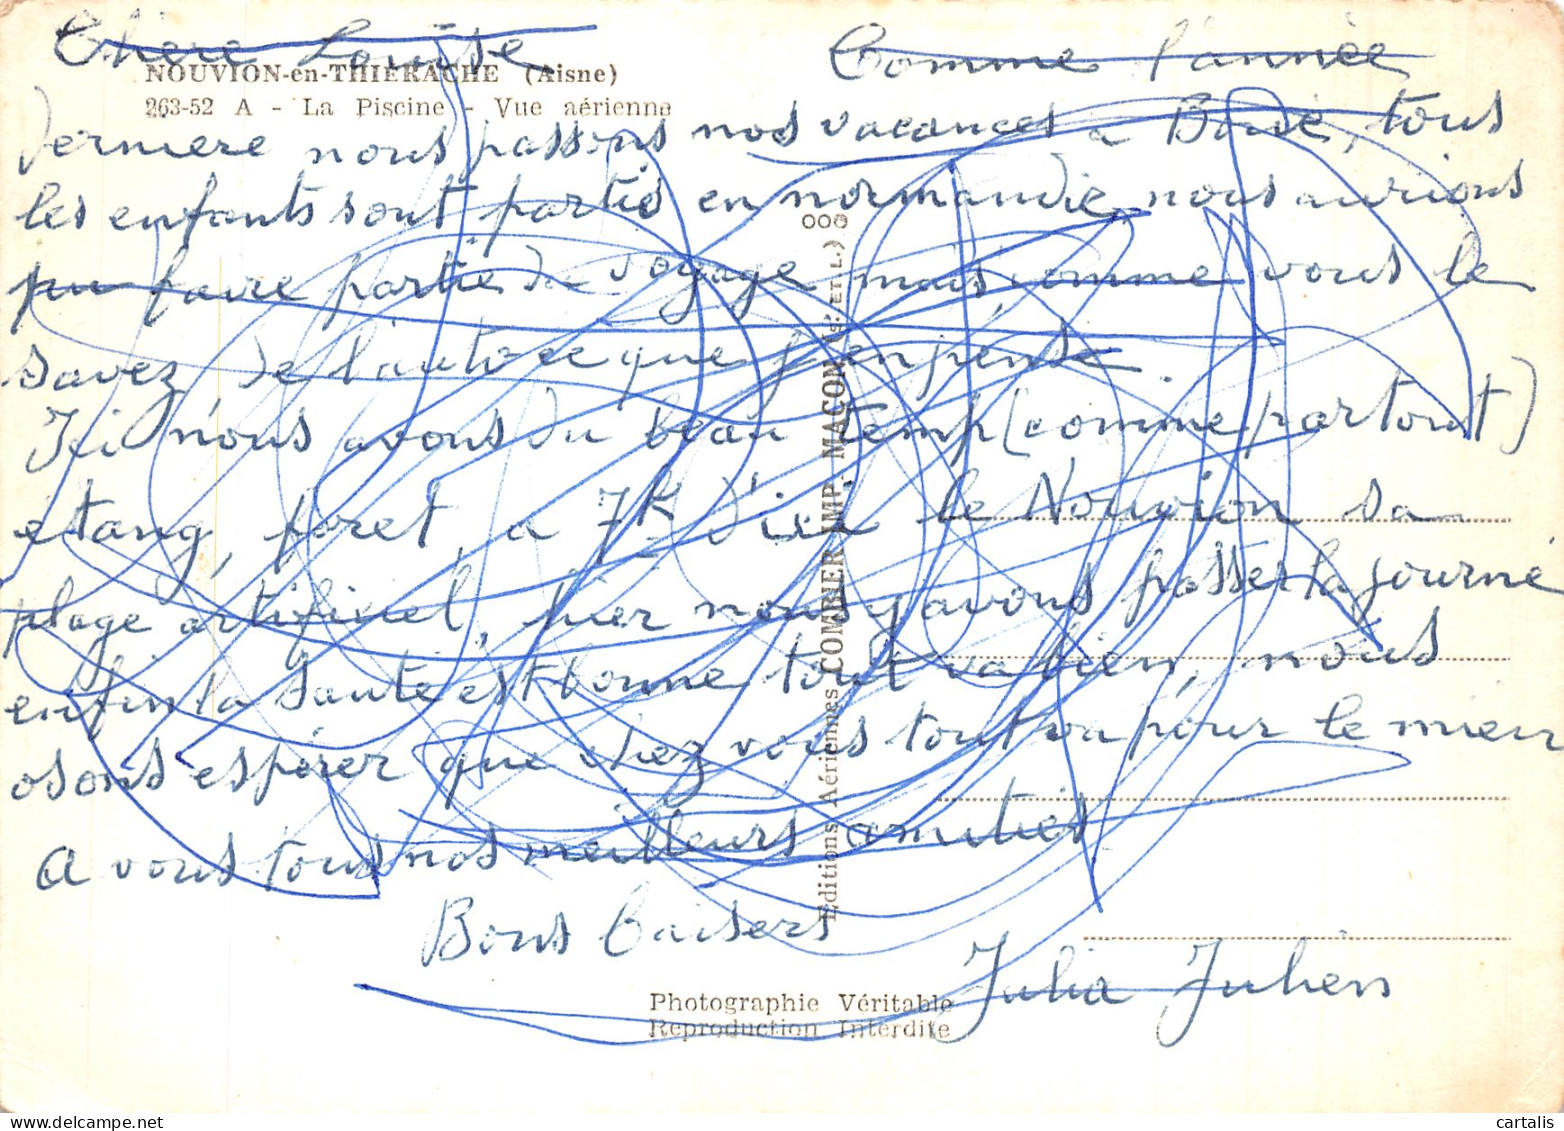 Chère Louise Comme l'année
NOUVION-en-THIERACHE (Aisne)
263-52 A - La Piscine - Vue aérienne
Derniere nous passons nos vacances a Boué, tous
les enfants sont partis en normandie, nous aurions
pu faire partie du voyage mais, comme vous le
savez, de l'auto ce que j'en pense.
Ici nous avons du beau temp (comme partout)
etang, foret, a 7K d'ici le Nouvion sa
plage artificiel, hier nous y avons passer la journé
enfin la santé est bonne tout va bien, nous
osons espérer que chez vous tout va pour le mieux
a vous tous nos meilleurs amitiés
Bons baisers
Julia Julien
Editions Aériennes COMBIER IMP. MACON (S. ET L.)
Photographie Véritable
Reproduction Interdite
cartalis